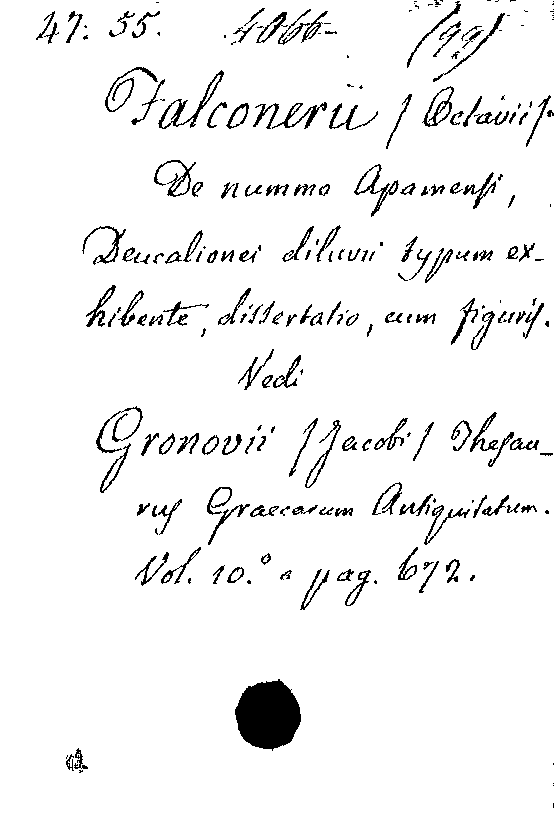 47. 55. 4066- (99)
Falconerii / Octavii /.
De nummo Apamensi,
Deucalionei diluvii typum ex-
hibente, dissertatio, cum figuris.
Vedi
Gronovii / Jacobi / Thesau-
rus Graecarum Antiquitatum.
Vol. 10.° a pag. 672.